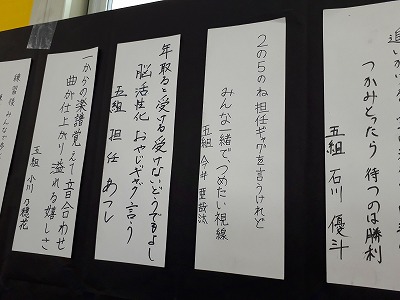 追いかける
つかみとったら 待つのは勝利
五組 石川 優斗
2の5のね担任ギャグを言うけれど
みんな一緒で、つめたい視線
五組 今井 亜哉汰
年取ると受ける受けないどうでもよし
脳活性化 おやじギャグ言う
五組 担任 あつし
一からの楽譜覚えて音合わせ
曲が仕上がり溢れる嬉しさ
五組 小川 乃穂花
練習後 みんなで